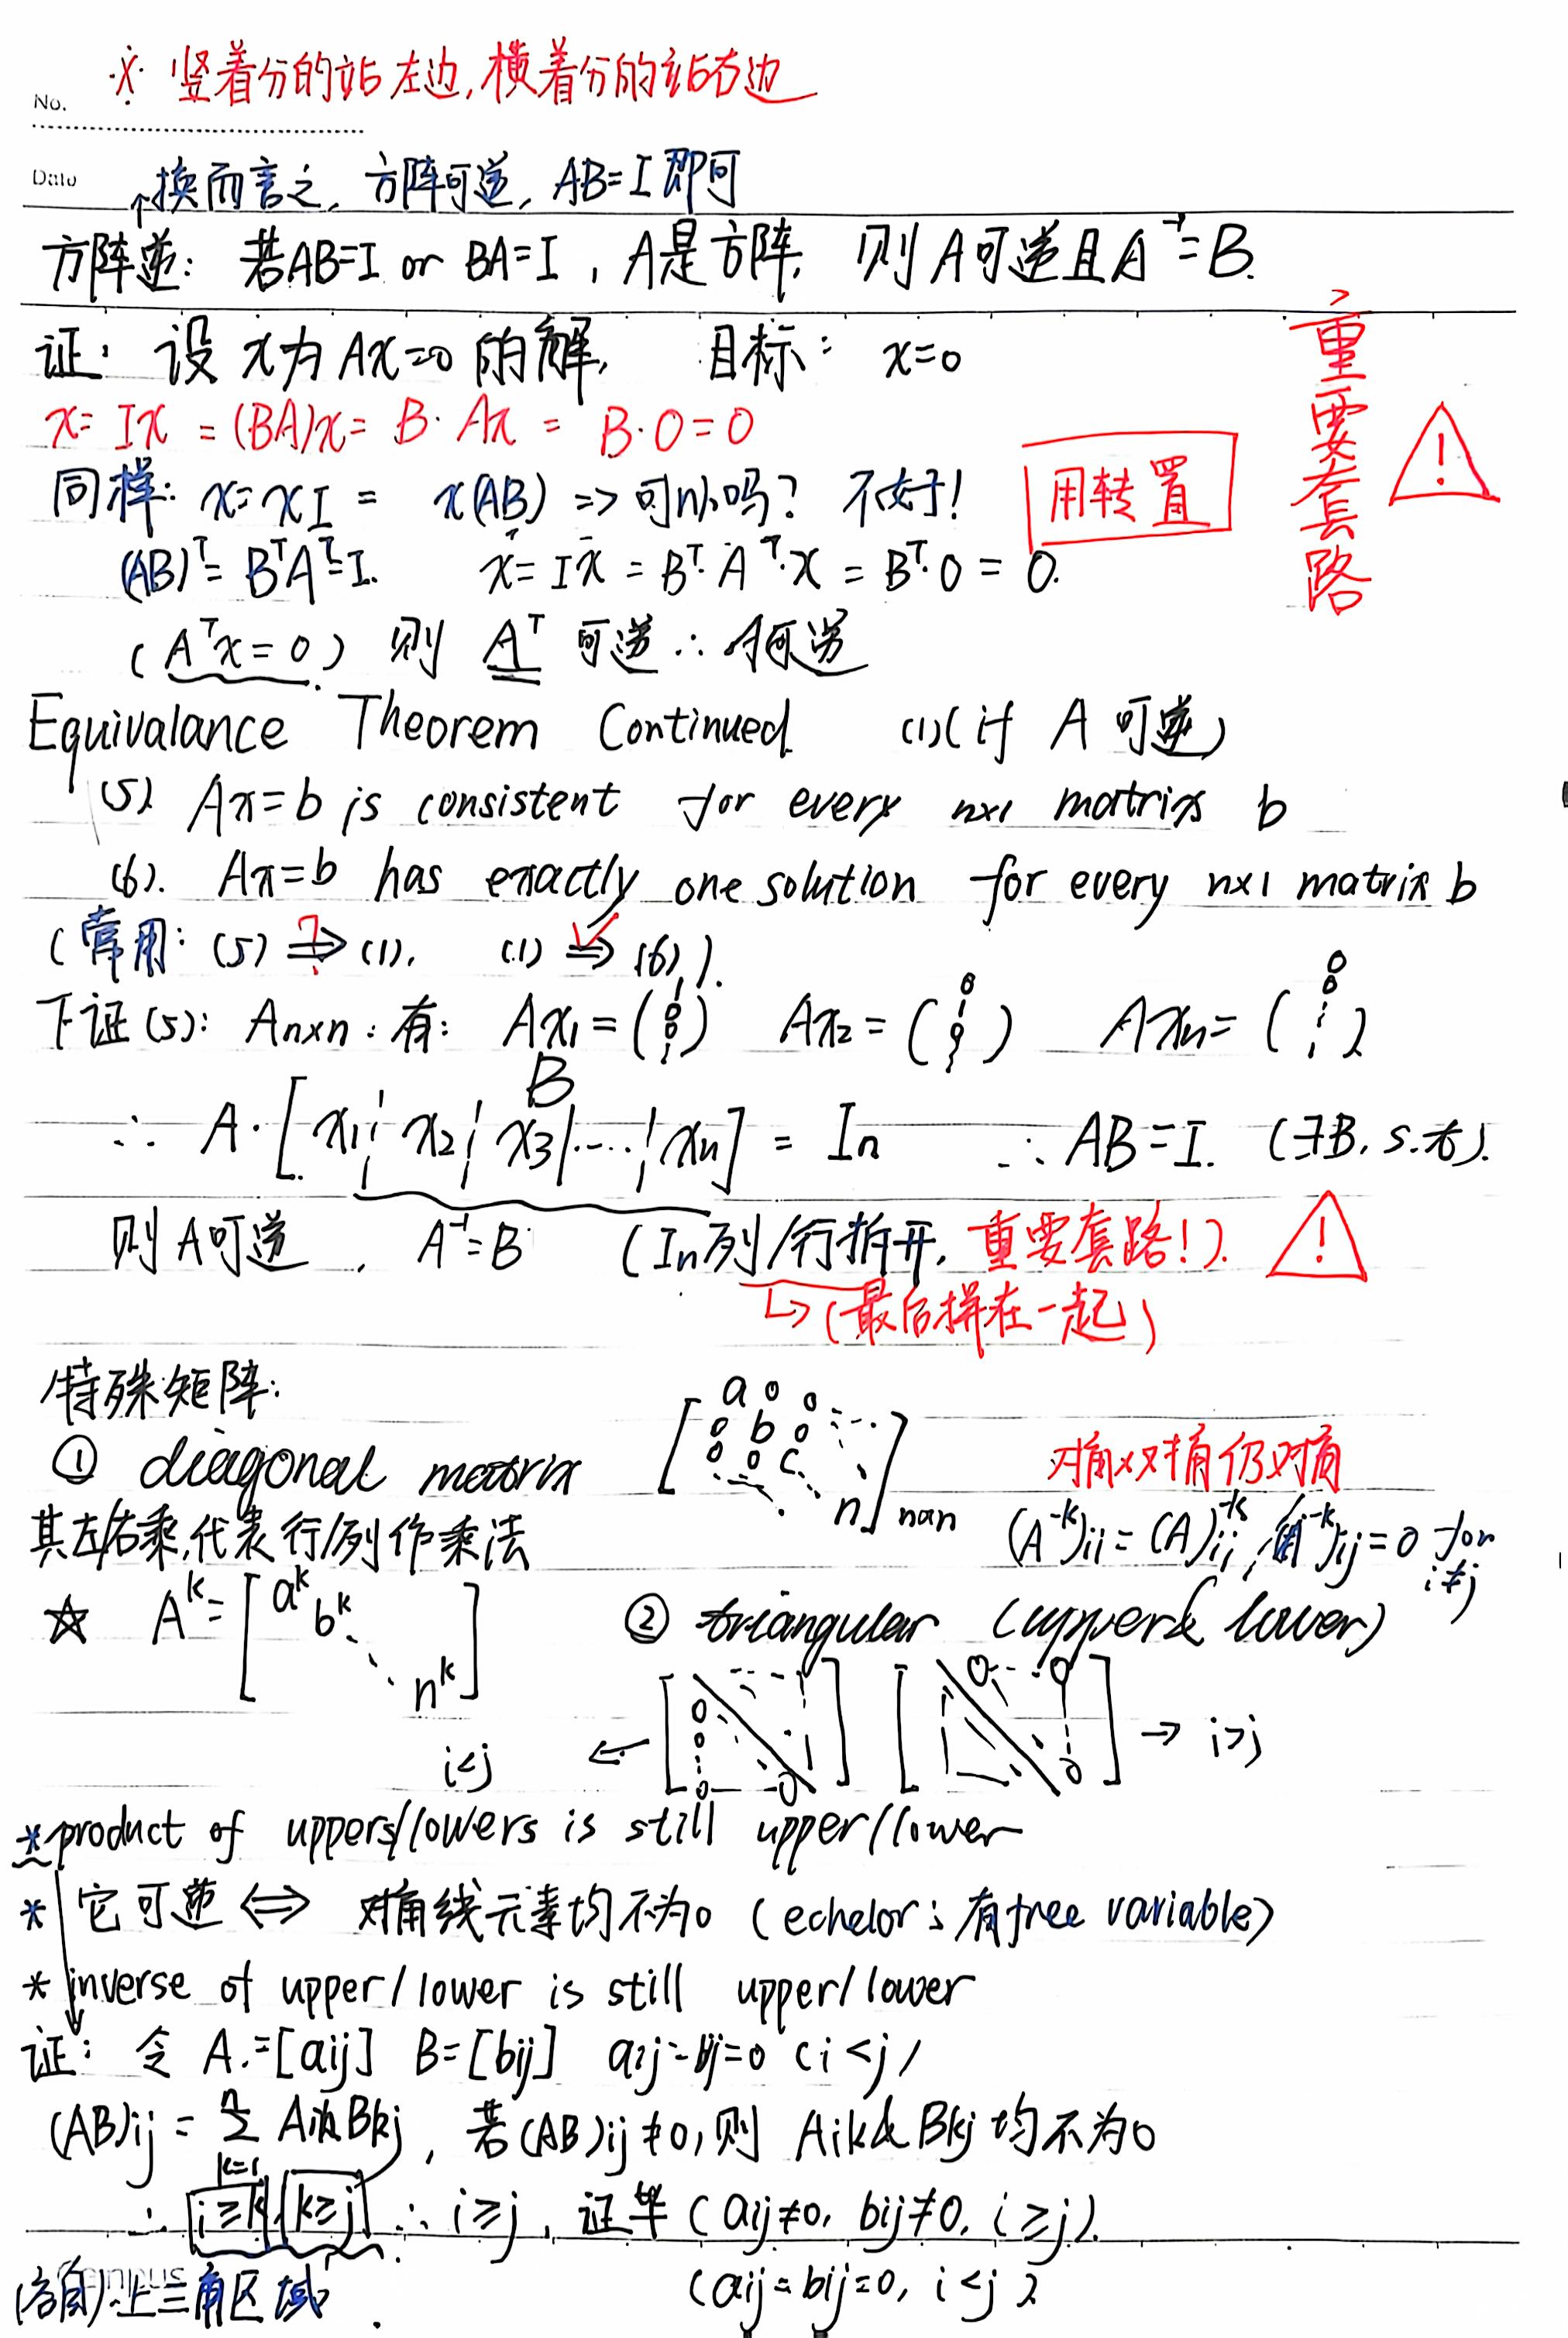 ※ 竖着分的站左边,横着分的站右边
No.
Date
↑换而言之, 方阵可逆, AB=I即可
方阵逆: 若AB=I or BA=I, A是方阵, 则A可逆且A⁻¹=B.
证: 设x为Ax=0的解, 目标: x=0
x=Ix=(BA)x=B·Ax=B·0=0
同样: x=xI=x(AB) => 可以吗? 不太好!
用转置
重要套路
!
(AB)ᵀ=BᵀAᵀ=I. x=Ix=Bᵀ·Aᵀ·x=Bᵀ·0=0.
(Aᵀx=0) 则 Aᵀ 可逆 ∴ A可逆
Equivalance Theorem Continued (1)(if A 可逆)
(5) Ax=b is consistent for every nx1 matrix b
(6). Ax=b has exactly one solution for every nx1 matrix b
(常用: (5) ⇒ (1), (1) ⇒ (6)).
?
✓
下证(5): Anxn: 有: Ax₁=( 1 0 0 ⋮ ) Ax₂=( 0 1 0 ⋮ ) Axn=( 0 0 ⋮ 1 )
B
∴ A·[x₁¦x₂¦x₃|····¦xn]=In ∴ AB=I. (∃B, s.t.)
则A可逆, A⁻¹=B (In列/行拆开, 重要套路!).
!
↳(最后拼在一起)
特殊矩阵:
① diagonal matrix
[a 0 0
0 b 0 ···
0 0 c
n] nxn
对角x对角仍对角
其左/右乘,代表行/列作乘法
(A⁻ᵏ)ii=(A)ii⁻ᵏ, (A⁻ᵏ)ij=0 for i≠j
☆ Aᵏ=[aᵏ bᵏ ⋱ nᵏ]
② triangular (upper& lower)
i<j ← [0 0 ⋮ 0 0] [0 ··· 0 ⋮ 0] → i>j
*product of uppers/lowers is still upper/lower
* 它可逆 ⇔ 对角线元素均不为0 (echelor: 有free variable)
* inverse of upper/lower is still upper/lower
证: 令 A.=[aij] B=[bij] aij=bij=0 (i<j)
(AB)ij=∑ⁿₖ₌₁ AikBkj, 若(AB)ij≠0, 则 Aik&Bkj 均不为0
∴ i≥k k≥j ∴ i≥j, 证毕 (aij≠0, bij≠0, i≥j).
(各自)上三角区域
(aij=bij=0, i<j)